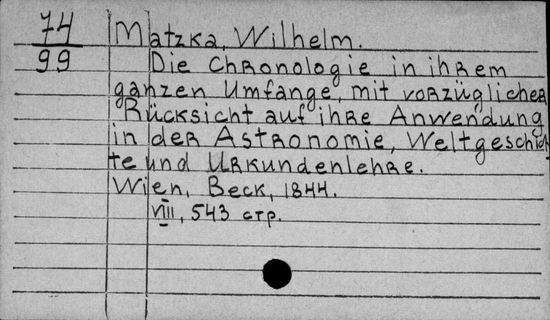 74
99
Matzka, Wilhelm.
Die Chronologie in ihrem
ganzen Umfange, mit vorzüglicher
Rücksicht auf ihre Anwendung
in der Astronomie, Weltgeschich-
te und Urkundenlehre.
Wien, Beck, 1844.
VIII, 543 стр.